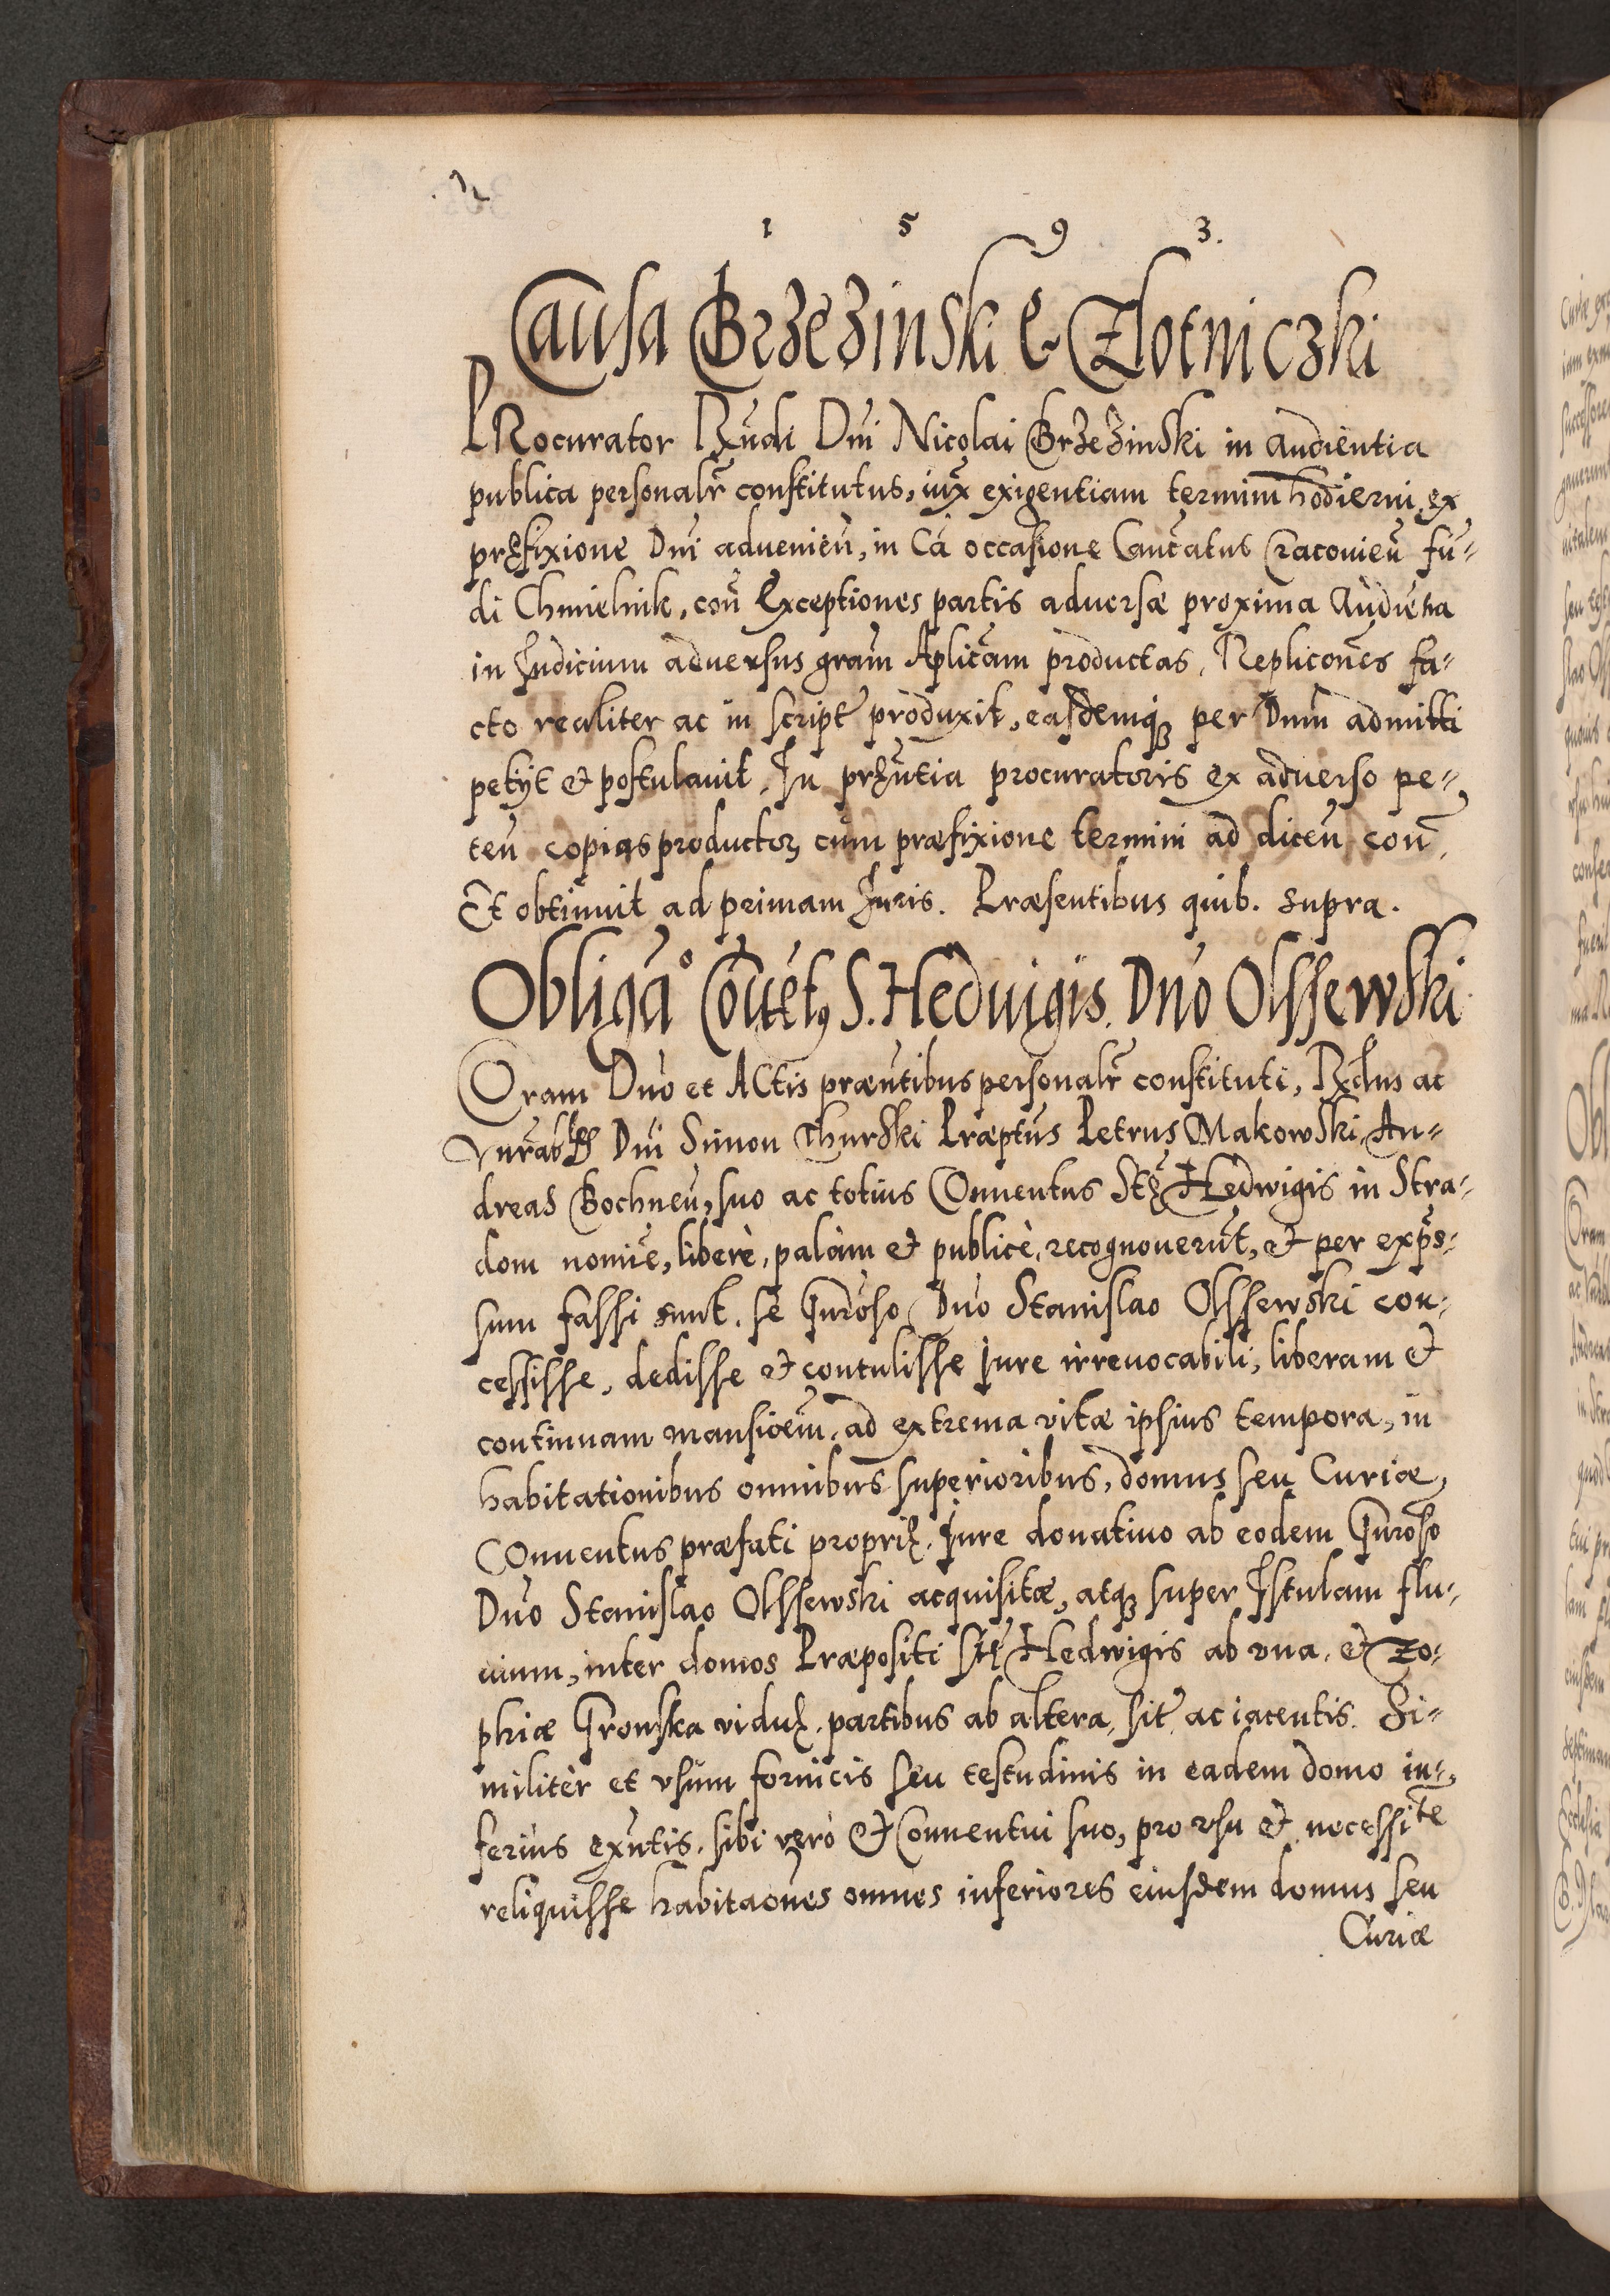 1 5 9 3.
Causa Brzezinski & Zlotniczki
PRocurator Rndi Dni Nicolai Brzezinski in audientia
publica personalr constitutus, iux exigentiam termini hodierni, ex
pręfixione Dni advenien, in Ca occasione Cantatus Cracovien fu⸗
di Chmielnik, con Exceptiones partis adversæ proxima Audientia
in Judicium adversus gram Aplicam productas, Replicones fa⸗
cto realiter ac in script produxit, easdemq; per Dnm admitti
petijt et postulavit, In pręntia procuratoris ex adverso pe⸗
ten copias productor, cum præfixione termini ad dicen con,
Et obtinuit ad primam Juris. Præsentibus quib. supra.
Obligao Conuetus S. Hedvigis. Dno Olssewski
Coram Dno et ACtis præntibus personalr constituti, Rndus ac
Vnrables Dni Simon Thurski Præptus Petrus Makowski, An⸗
dreas Bochnen, suo ac totius COnuentus Stę Hedwigis in Stra⸗
dom nomie, liberè, palàm et publicè, recognouerut, et per exps⸗
sum fassi sunt. se Gnroso Dno Stanislao Olssewski con⸗
cessisse, dedisse et contulisse Jure irreuocabili, liberam et
continuam mansioem, ad extrema vitæ ipsius tempora, in
habitationibus omnibus superioribus, domus seu Curiæ,
COnuentus præfati proprię, Jure donatiuo ab eodem Gnroso
Dno Stanislao Olssewski acquisitæ, atq; super Istulam flu⸗
uium, inter domos Præpositi Stę Hedwigis ab vna, et Zo⸗
phiæ Gronska viduę, partibus ab altera, sit ac iacentis. Si⸗
militèr et vsum fornicis seu testudinis in eadem domo in⸗
ferius exntis, sibi verò et Conuentui suo, pro vsu et necessite
reliquisse habitaones omnes inferiores eiusdem domus seu
Curiæ